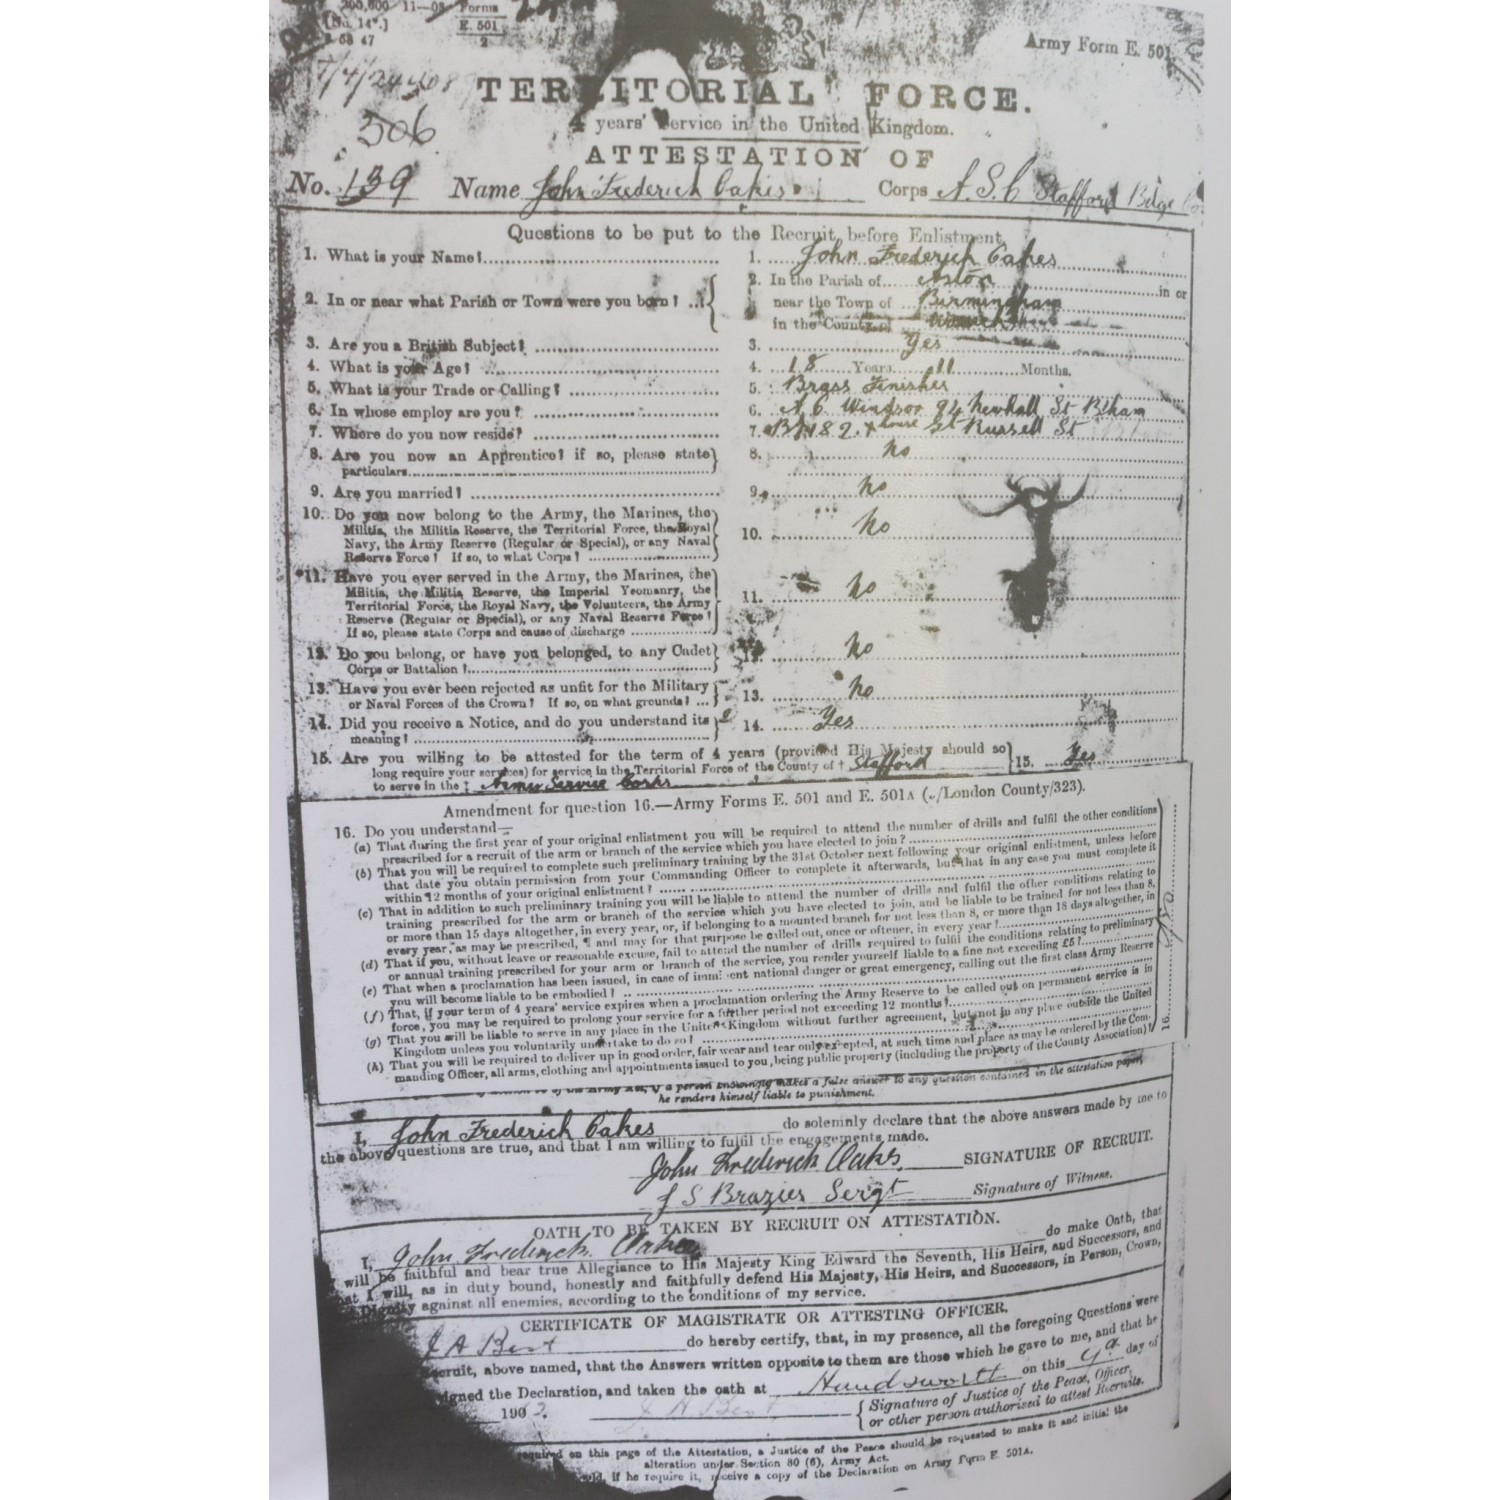 200,000 11—08 Forms
[No. 14".] E. 501
58 47 2
Army Form E. 501
306
TERRITORIAL FORCE.
4 years' Service in the United Kingdom.
ATTESTATION OF
No. 139 Name John Frederick Oakes Corps A.S.C Stafford Bdge Co
Questions to be put to the Recruit before Enlistment.
1. What is your Name? 1. John Frederick Oakes
2. In or near what Parish or Town were you born? 2. In the Parish of Aston in or
near the Town of Birmingham
in the County of Warwick
3. Are you a British Subject? 3. Yes
4. What is your Age? 4. 18 Years 11 Months.
5. What is your Trade or Calling? 5. Brass Finisher
6. In whose employ are you? 6. A C Windsor 94 Newhall St Bham
7. Where do you now reside? 7. 182 house Gt Russell St
8. Are you now an Apprentice? if so, please state 8. No
particulars
9. Are you married? 9. No
10. Do you now belong to the Army, the Marines, the
Militia, the Militia Reserve, the Territorial Force, the Royal
Navy, the Army Reserve (Regular or Special), or any Naval 10. No
Reserve Force? If so, to what Corps?
*11. Have you ever served in the Army, the Marines, the
Militia, the Militia Reserve, the Imperial Yeomanry, the
Territorial Force, the Royal Navy, the Volunteers, the Army 11. No
Reserve (Regular or Special), or any Naval Reserve Force?
If so, please state Corps and cause of discharge
12. Do you belong, or have you belonged, to any Cadet 12. No
Corps or Battalion?
13. Have you ever been rejected as unfit for the Military 13. No
or Naval Forces of the Crown? If so, on what grounds?
14. Did you receive a Notice, and do you understand its 14. Yes
meaning?
15. Are you willing to be attested for the term of 4 years (provided His Majesty should so
long require your services) for service in the Territorial Force of the County of † Stafford 15. Yes
to serve in the ‡ Army Service Corks
Amendment for question 16.—Army Forms E. 501 and E. 501A (/London County/323).
16. Do you understand—
(a) That during the first year of your original enlistment you will be required to attend the number of drills and fulfil the other conditions
prescribed for a recruit of the arm or branch of the service which you have elected to join?
(b) That you will be required to complete such preliminary training by the 31st October next following your original enlistment, unless before
that date you obtain permission from your Commanding Officer to complete it afterwards, but that in any case you must complete it
within 12 months of your original enlistment?
(c) That in addition to such preliminary training you will be liable to attend the number of drills and fulfil the other conditions relating to
training prescribed for the arm or branch of the service which you have elected to join, and be liable to be trained for not less than 8,
or more than 15 days altogether, in every year, or, if belonging to a mounted branch for not less than 8, or more than 18 days altogether, in
every year, as may be prescribed, ¶ and may for that purpose be called out, once or oftener, in every year?
(d) That if you, without leave or reasonable excuse, fail to attend the number of drills required to fulfil the conditions relating to preliminary
or annual training prescribed for your arm or branch of the service, you render yourself liable to a fine not exceeding £5?
(e) That when a proclamation has been issued, in case of imminent national danger or great emergency, calling out the first class Army Reserve
you will become liable to be embodied?
(f) That, if your term of 4 years' service expires when a proclamation ordering the Army Reserve to be called out on permanent service is in
force, you may be required to prolong your service for a further period not exceeding 12 months?
(g) That you will be liable to serve in any place in the United Kingdom without further agreement, but not in any place outside the United
Kingdom unless you voluntarily undertake to do so?
(h) That you will be required to deliver up in good order, fair wear and tear only excepted, at such time and place as may be ordered by the Com-
manding Officer, all arms, clothing and appointments issued to you, being public property (including the property of the County Association)?
16.
of the Army Act, if a person knowingly makes a false answer to any question contained in the attestation paper,
he renders himself liable to punishment.
I, John Frederick Oakes do solemnly declare that the above answers made by me to
the above questions are true, and that I am willing to fulfil the engagements made.
John Frederick Oakes SIGNATURE OF RECRUIT.
J S Brazies Sergt Signature of Witness.
OATH TO BE TAKEN BY RECRUIT ON ATTESTATION.
I, John Frederick Oakes do make Oath, that
will be faithful and bear true Allegiance to His Majesty King Edward the Seventh, His Heirs, and Successors, and
that I will, as in duty bound, honestly and faithfully defend His Majesty, His Heirs, and Successors, in Person, Crown,
Dignity against all enemies, according to the conditions of my service.
CERTIFICATE OF MAGISTRATE OR ATTESTING OFFICER.
J A Bent do hereby certify, that, in my presence, all the foregoing Questions were
Recruit, above named, that the Answers written opposite to them are those which he gave to me, and that he
signed the Declaration, and taken the oath at Handsworth on this day of
190 J A Bent Signature of Justice of the Peace, Officer,
or other person authorised to attest Recruits.
required on this page of the Attestation, a Justice of the Peace should be requested to make it and initial the
alteration under Section 80 (6), Army Act.
if he require it, receive a copy of the Declaration on Army Form E. 501A.